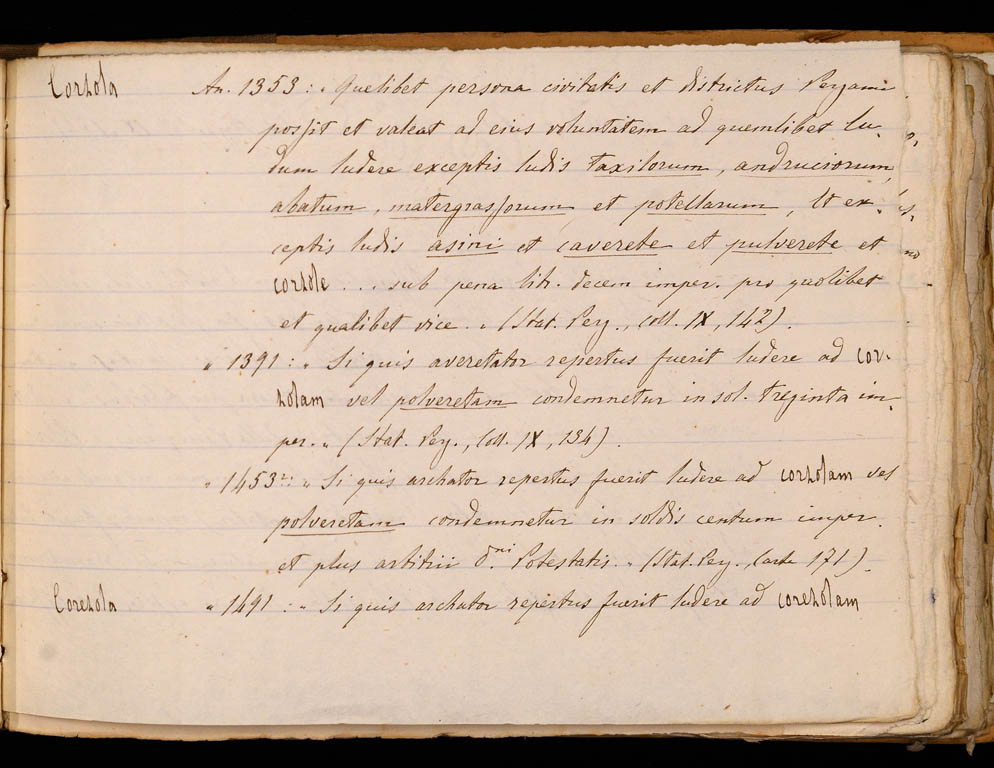 Corzola An. 1353 : „ Quelibet persona civitatis et districtus Pergami
possit et valeat ad eius voluntatem ad quemlibet lu-
dum ludere exceptis ludis taxilorum, andruciorum,
abatum, matergrassorum et potellarum, Et ex-
ceptis ludis asini et caverete et pulverete et
corzole ... sub pena libr. decem imper. pro quolibet
et qualibet vice. „ (Stat. Perg., coll. IX, 142).
„ 1391 : „ Si quis averetator repertus fuerit ludere ad cor-
zolam vel polveretam condemnetur in sol. treginta im-
per. „ (Stat. Perg., Coll. IX, 134).
„ 1453 : „ Si quis archator repertus fuerit ludere ad corzolam vel
polveretam condemnetur in soldis centum imper.
et plus arbitrii d.ni Potestatis. „ (Stat. Perg. Carte 171).
Corezola „ 1491 : „ Si quis archator repertus fuerit ludere ad corezolam